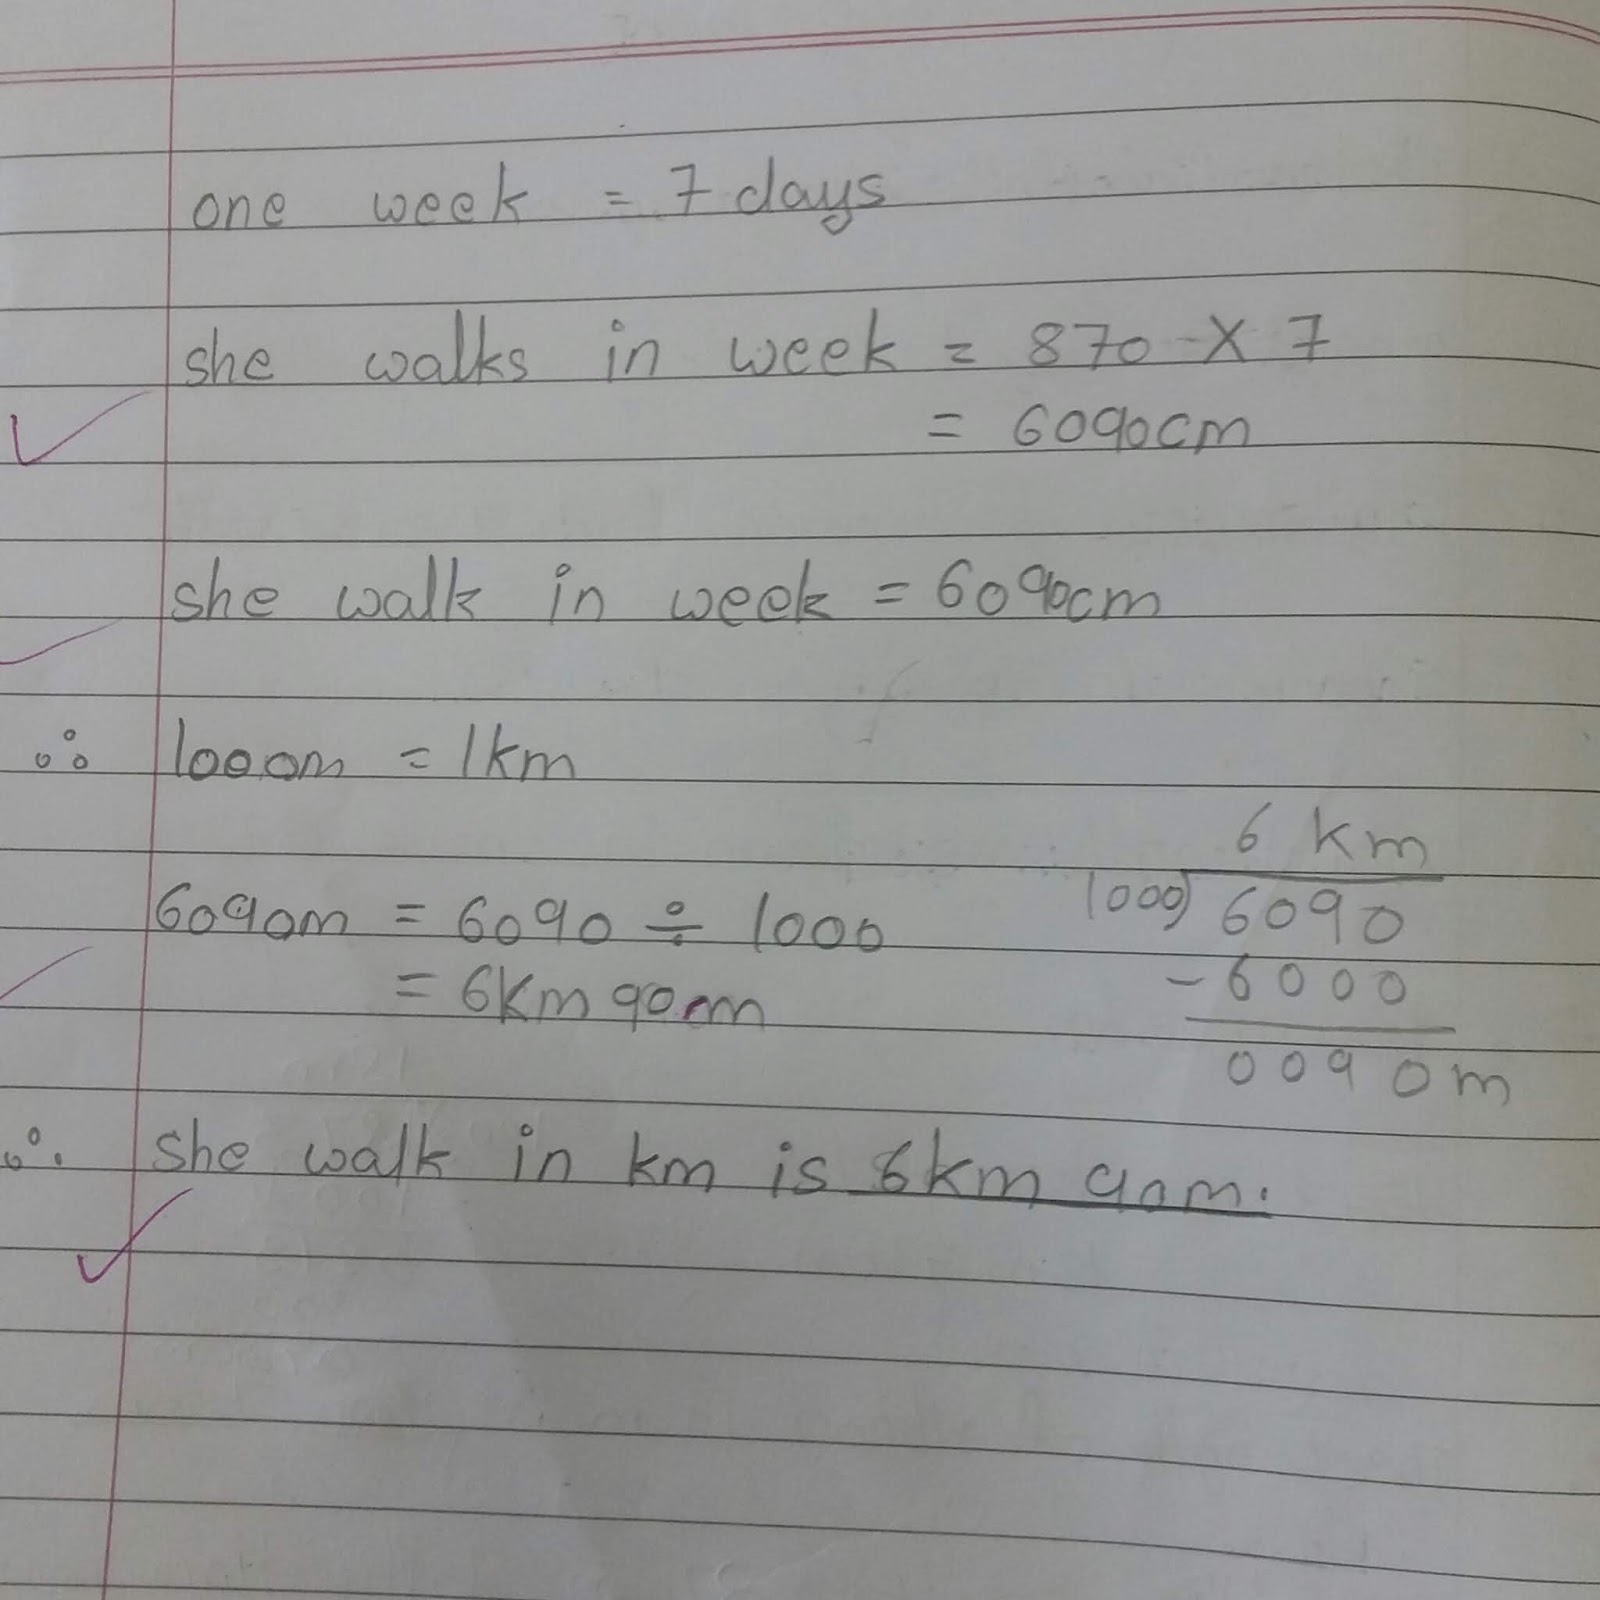 one week = 7 days
she walks in week = 870 X 7
= 6090cm
she walk in week = 6090cm
∴ 1000m = 1km
6090m = 6090 ÷ 1000
= 6km 90m
6 km
1000) 6090
- 6000
0090m
∴ she walk in km is 6km 90m.